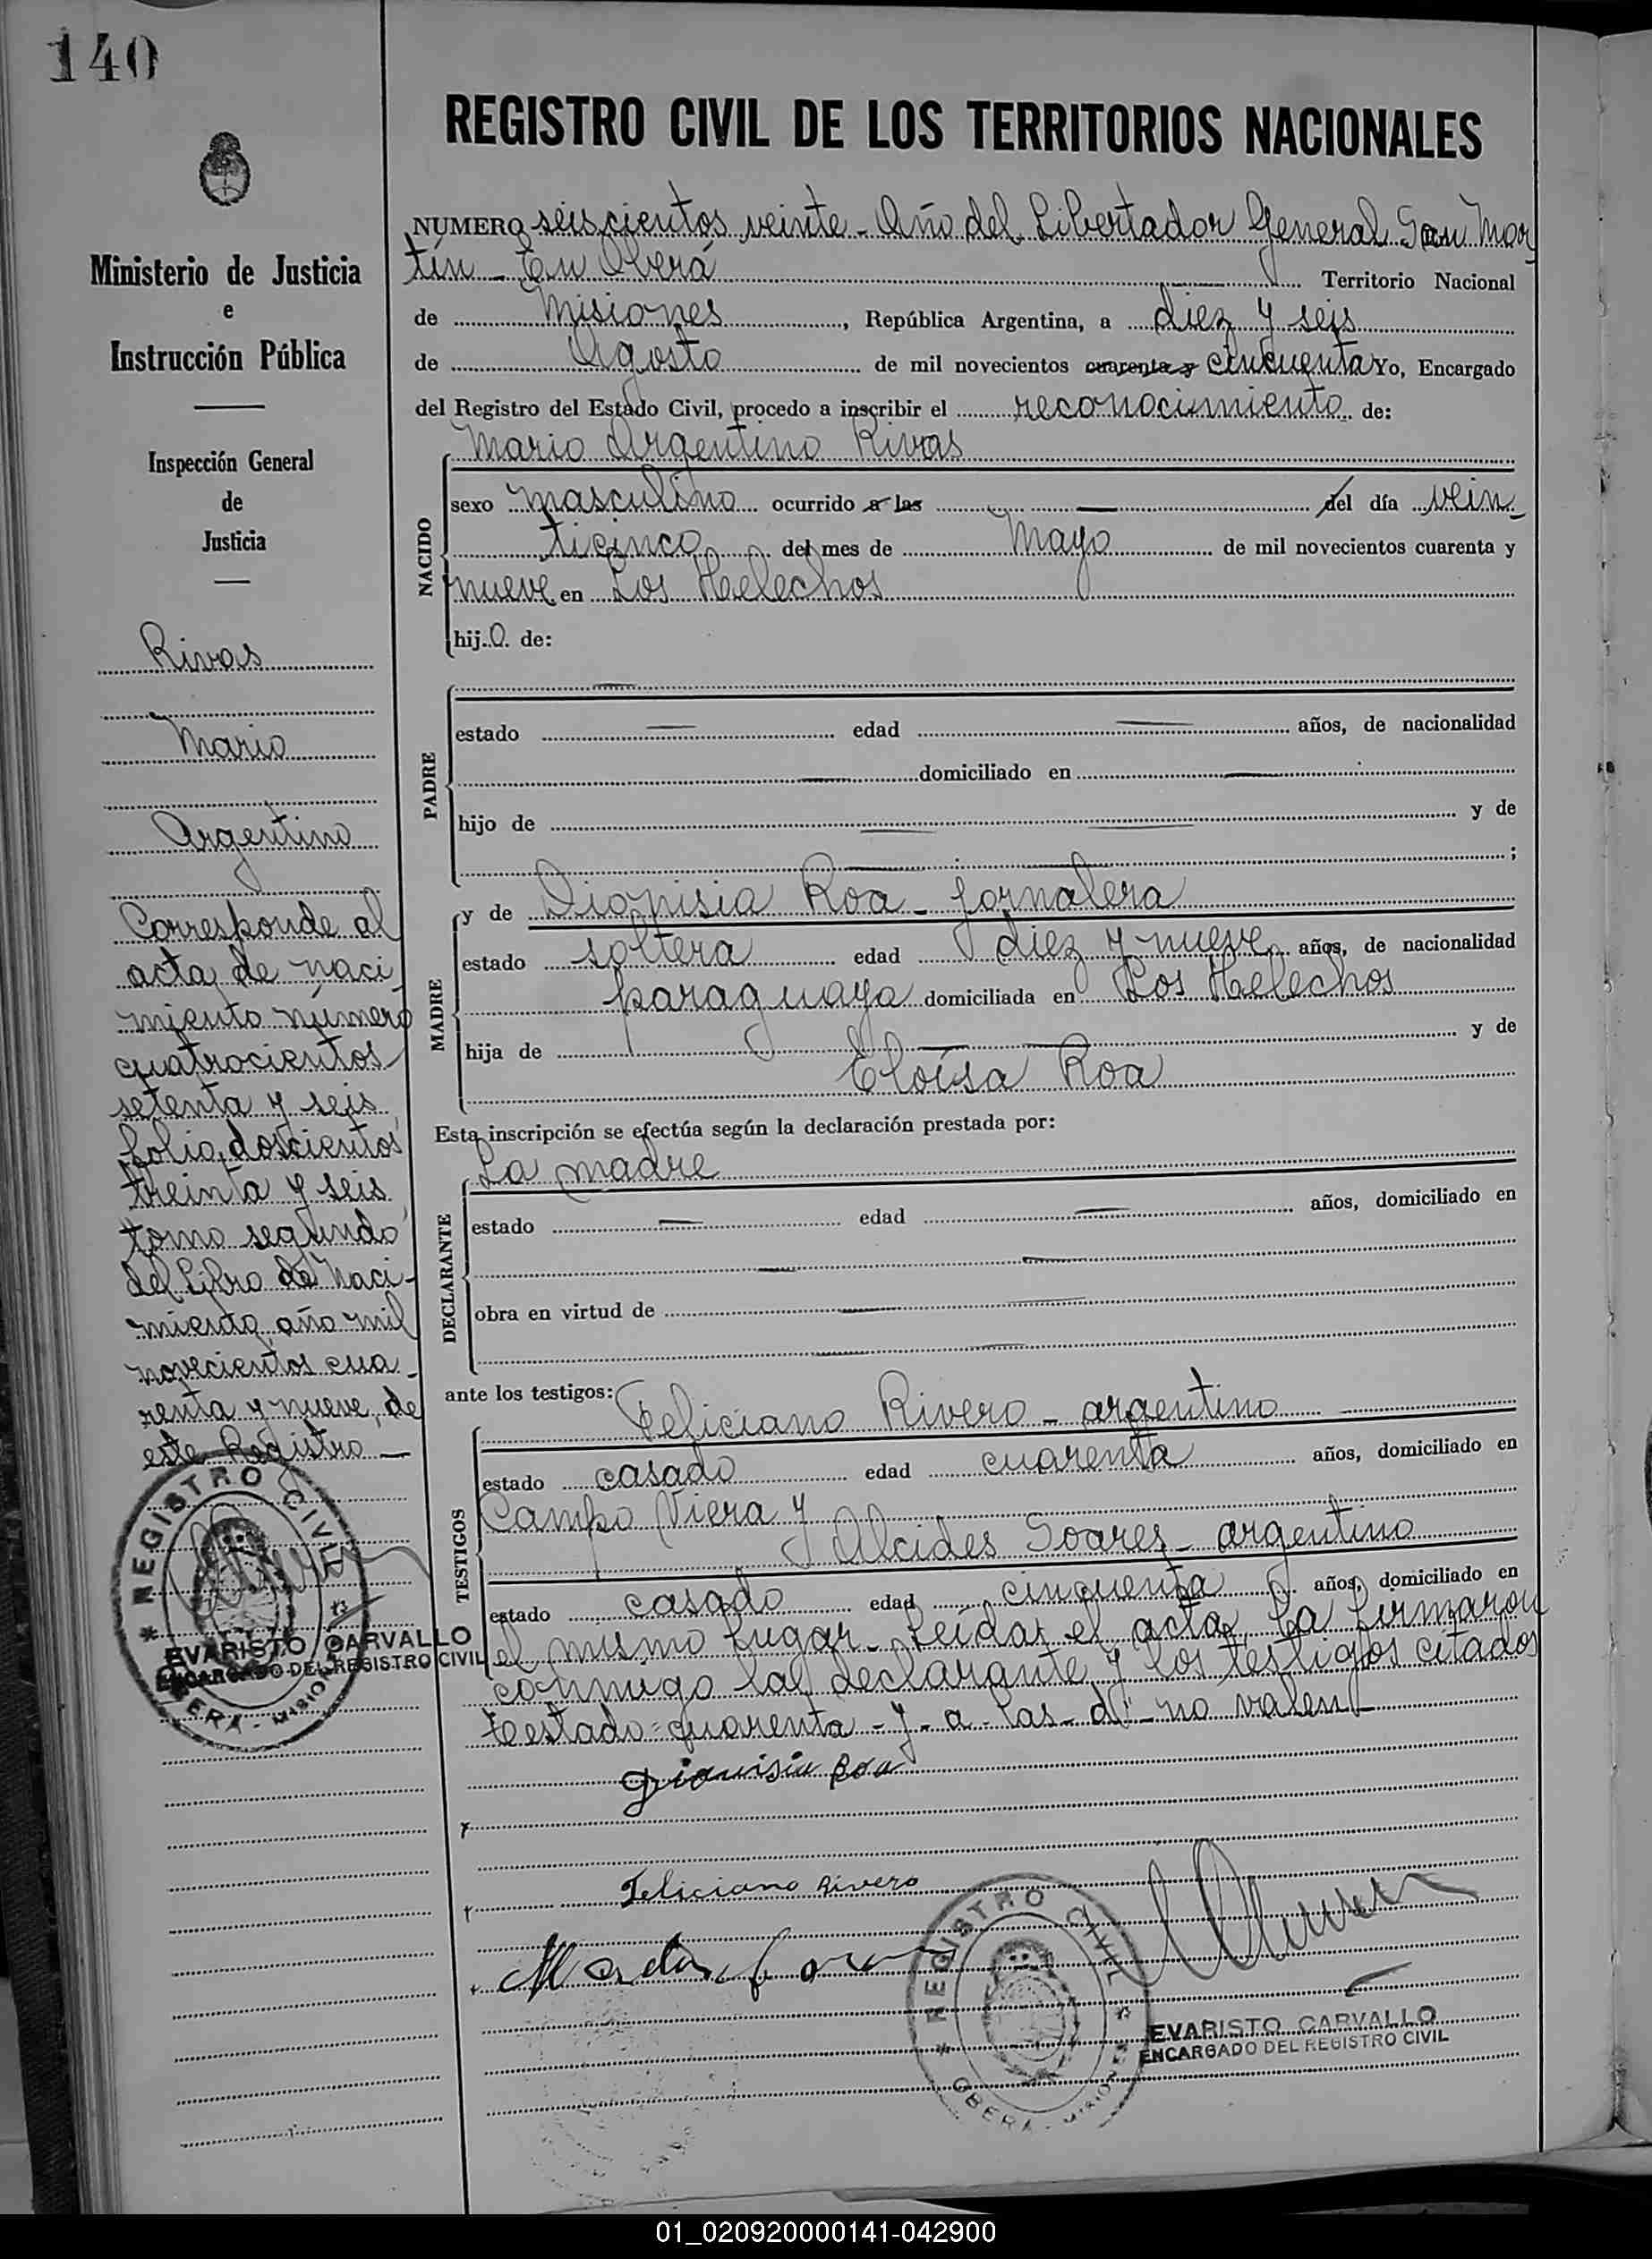 140
REGISTRO CIVIL DE LOS TERRITORIOS NACIONALES
Ministerio de Justicia
e
Instrucción Pública
Inspección General
de
Justicia
Rivas
Mario
Argentino
Corresponde al
acta de naci
miento número
cuatrocientos
setenta y seis
folio doscientos
treinta y seis
tomo segundo
del Libro de Naci-
miento año mil
novecientos cua-
renta y nueve, de
este Registro
REGISTRO CIVIL
EVARISTO CARVALLO
ENCARGADO DEL REGISTRO CIVIL
OBERA - MISIONES
NUMERO seiscientos veinte - Año del Libertador General San Mar
tín - En Oberá Territorio Nacional
de Misiones, República Argentina, a diez y seis
de Agosto de mil novecientos cuarenta y cincuenta Yo, Encargado
del Registro del Estado Civil, procedo a inscribir el reconocimiento de:
Mario Argentino Rivas
NACIDO
sexo masculino ocurrido a las — del día vein-
ticinco del mes de Mayo de mil novecientos cuarenta y
nueve en Los Helechos
hijo de:
PADRE
estado — edad — años, de nacionalidad
— domiciliado en —
hijo de — y de
— ;
MADRE
y de Dionisia Roa - jornalera
estado soltera edad diez y nueve años, de nacionalidad
paraguaya domiciliada en Los Helechos
hija de — y de
Eloísa Roa
Esta inscripción se efectúa según la declaración prestada por:
La madre
DECLARANTE
estado — edad — años, domiciliado en
obra en virtud de —
ante los testigos: Feliciano Rivero - argentino
TESTIGOS
estado casado edad cuarenta años, domiciliado en
Campo Viera y
Alcides Soares - argentino
estado casado edad cincuenta años, domiciliado en
el mismo lugar - Leída el acta, la firmaron
conmigo la declarante y los testigos citados
Testado = cuarenta - y - a - las - d" - no valen
Dionisia Roa
Feliciano Rivero
REGISTRO CIVIL
OBERA - MISIONES
EVARISTO CARVALLO
ENCARGADO DEL REGISTRO CIVIL
01_020920000141-042900